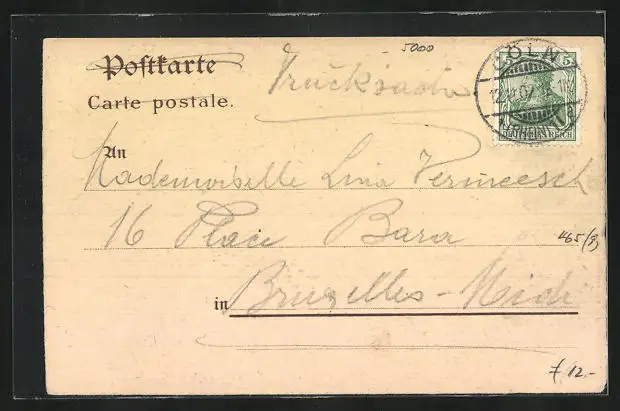 5000
Postkarte
Drucksache
Carte postale.
CÖLN
5
12
07
(RHEIN)
DEUTSCHES REICH
An
Mademoiselle Lina Vermeesch
16 Place Bara
465/9
in Bruxelles-Midi
12.-